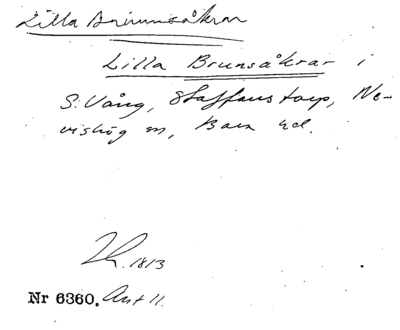 Lilla Brunnsåkrar
Lilla Brunsåkrar i
S. Vång, Staffanstorp, Ne-
vishög sn, Bara hd.
1813
Nr 6360. Ant 11.